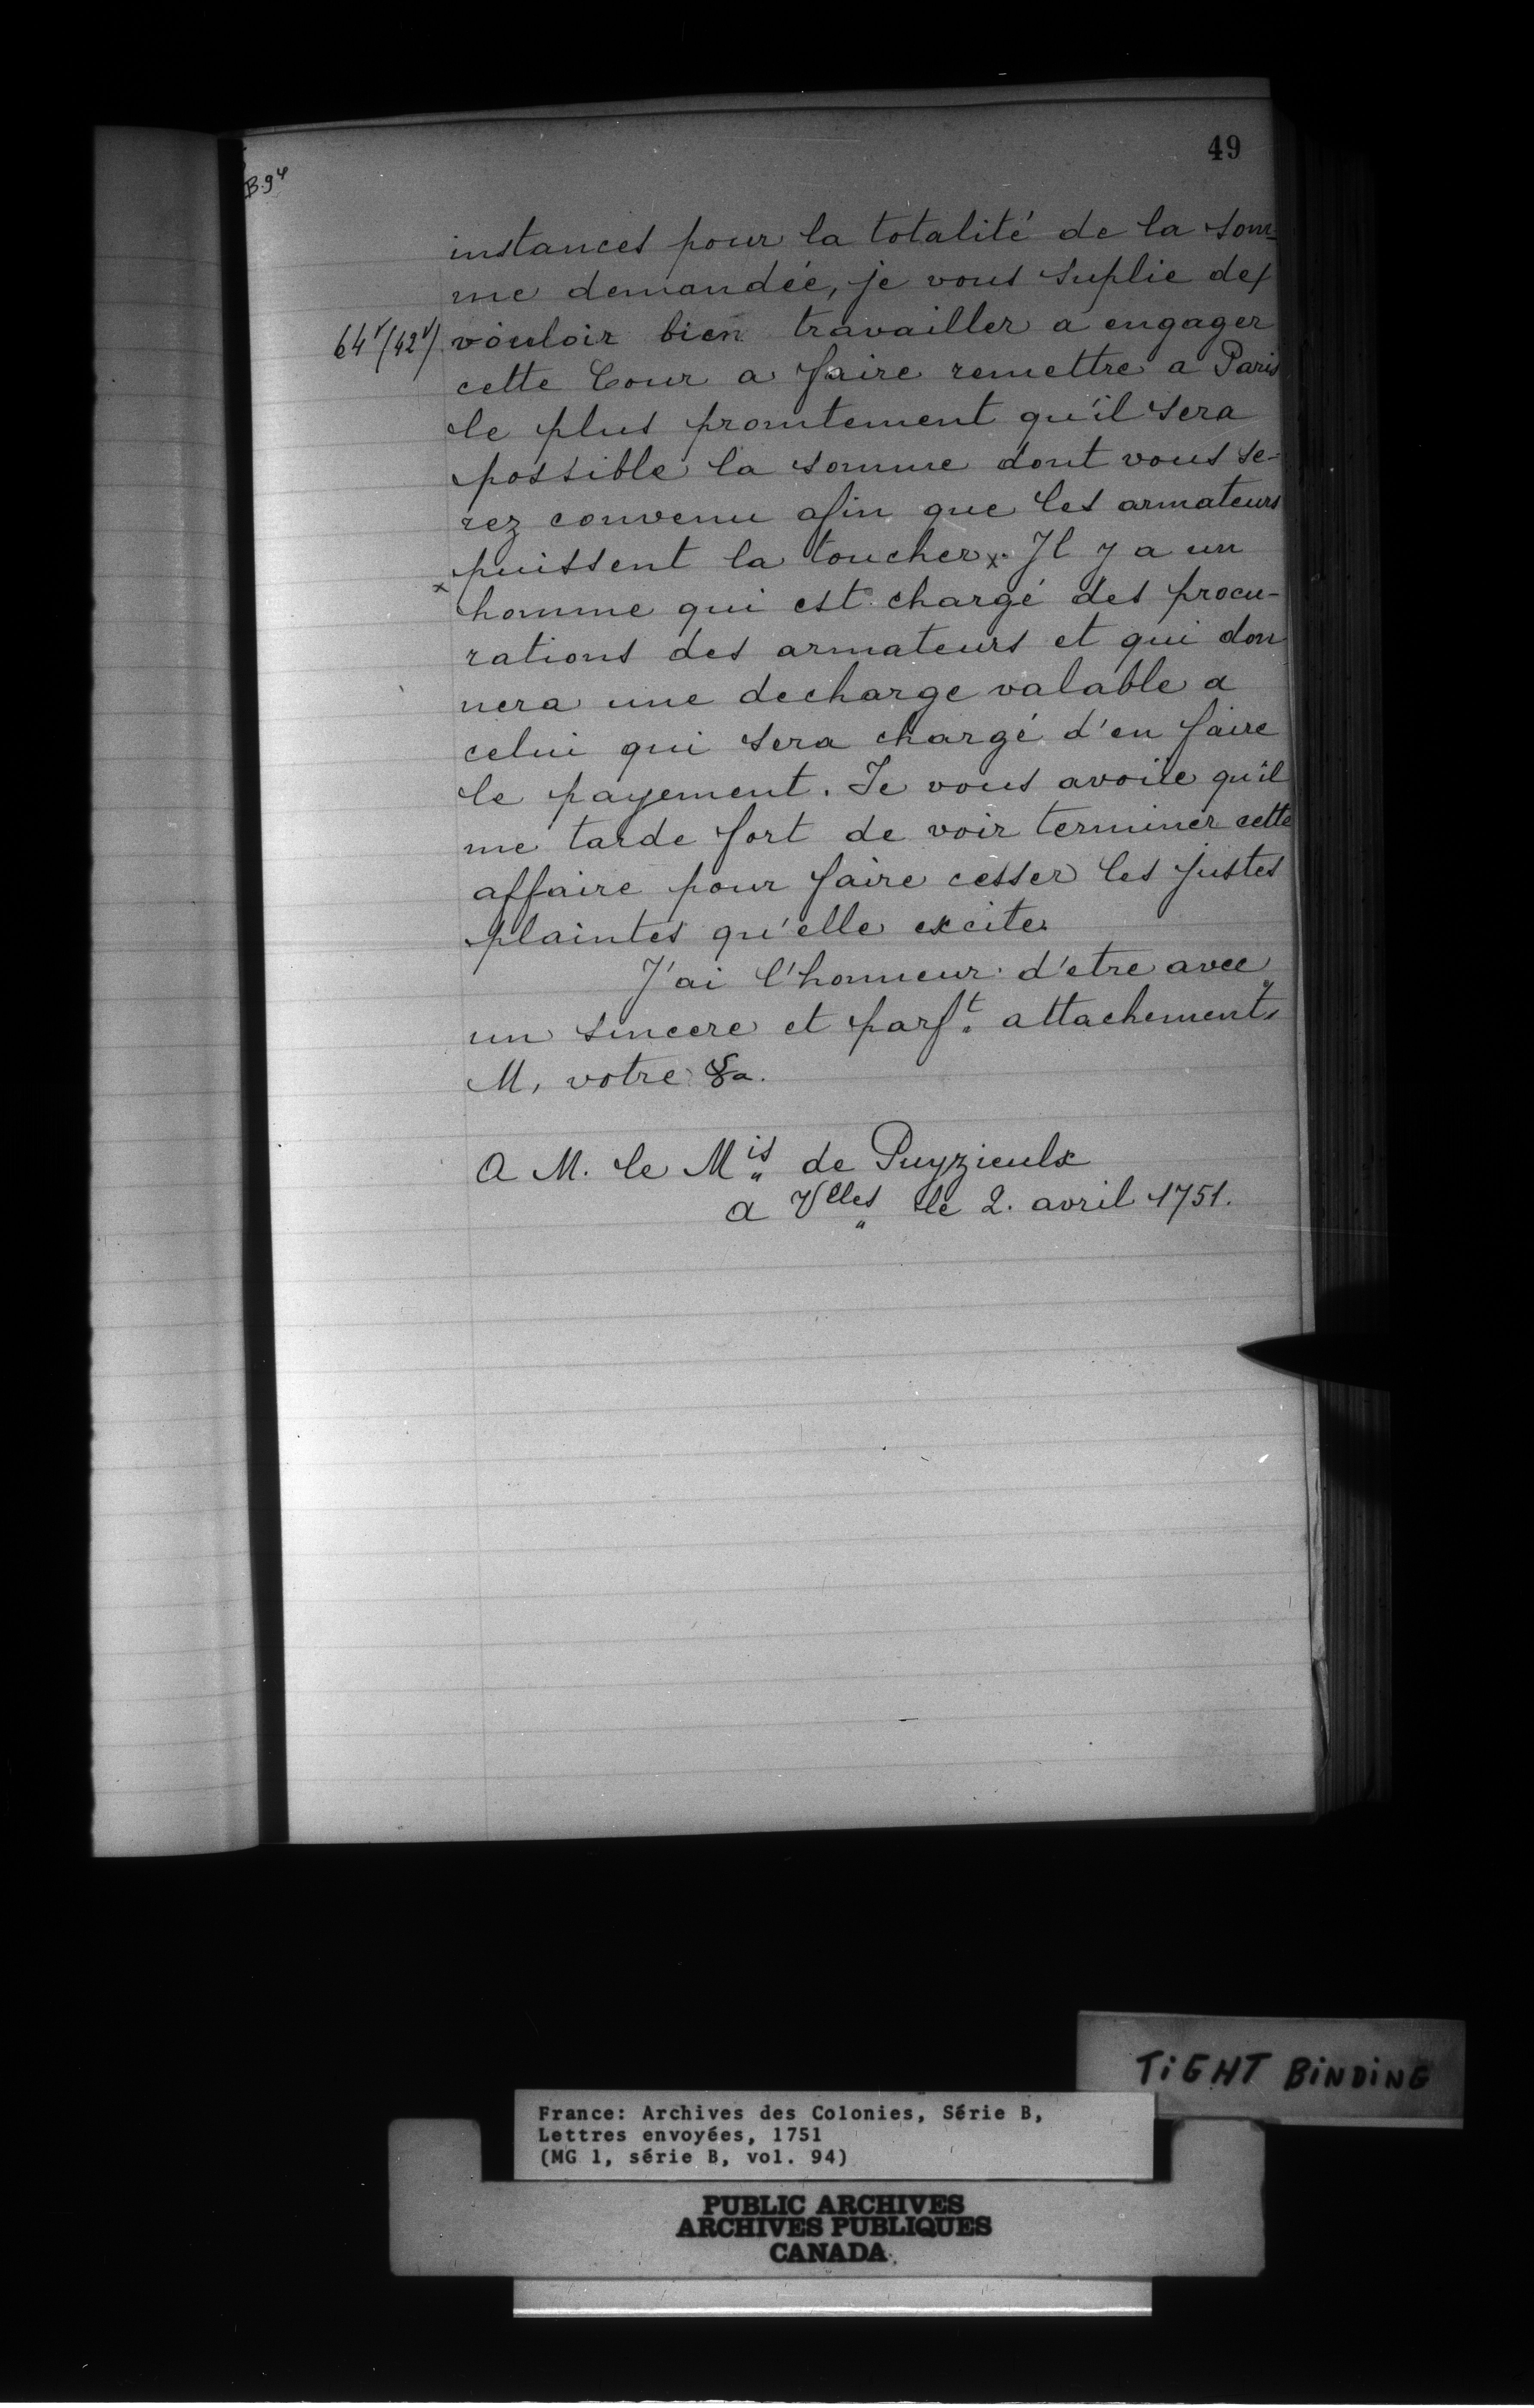 49
B.94
instances pour la totalité de la som-
me demandée, je vous suplie de/
64v/(42v) vouloir bien travailler a engager
cette Cour a faire remettre a Paris
le plus promtement qu'il sera
possible la somme dont vous se-
rez convenu afin que les armateurs
puissent la toucher x. Il y a un
x homme qui est chargé des procu-
rations des armateurs et qui don
nera une decharge valable a
celui qui sera chargé d'en faire
le payement. Je vous avoüe qu'il
me tarde fort de voir terminer cette
affaire pour faire cesser les justes
plaintes qu'elle excite.
J'ai l'honneur d'etre avec
un sincere et parft. attachement,
M, votre &a.
A M. le Mis de Puyzieulx
a Vlles le 2. avril 1751.
TIGHT BINDING
France: Archives des Colonies, Série B,
Lettres envoyées, 1751
(MG 1, série B, vol. 94)
PUBLIC ARCHIVES
ARCHIVES PUBLIQUES
CANADA